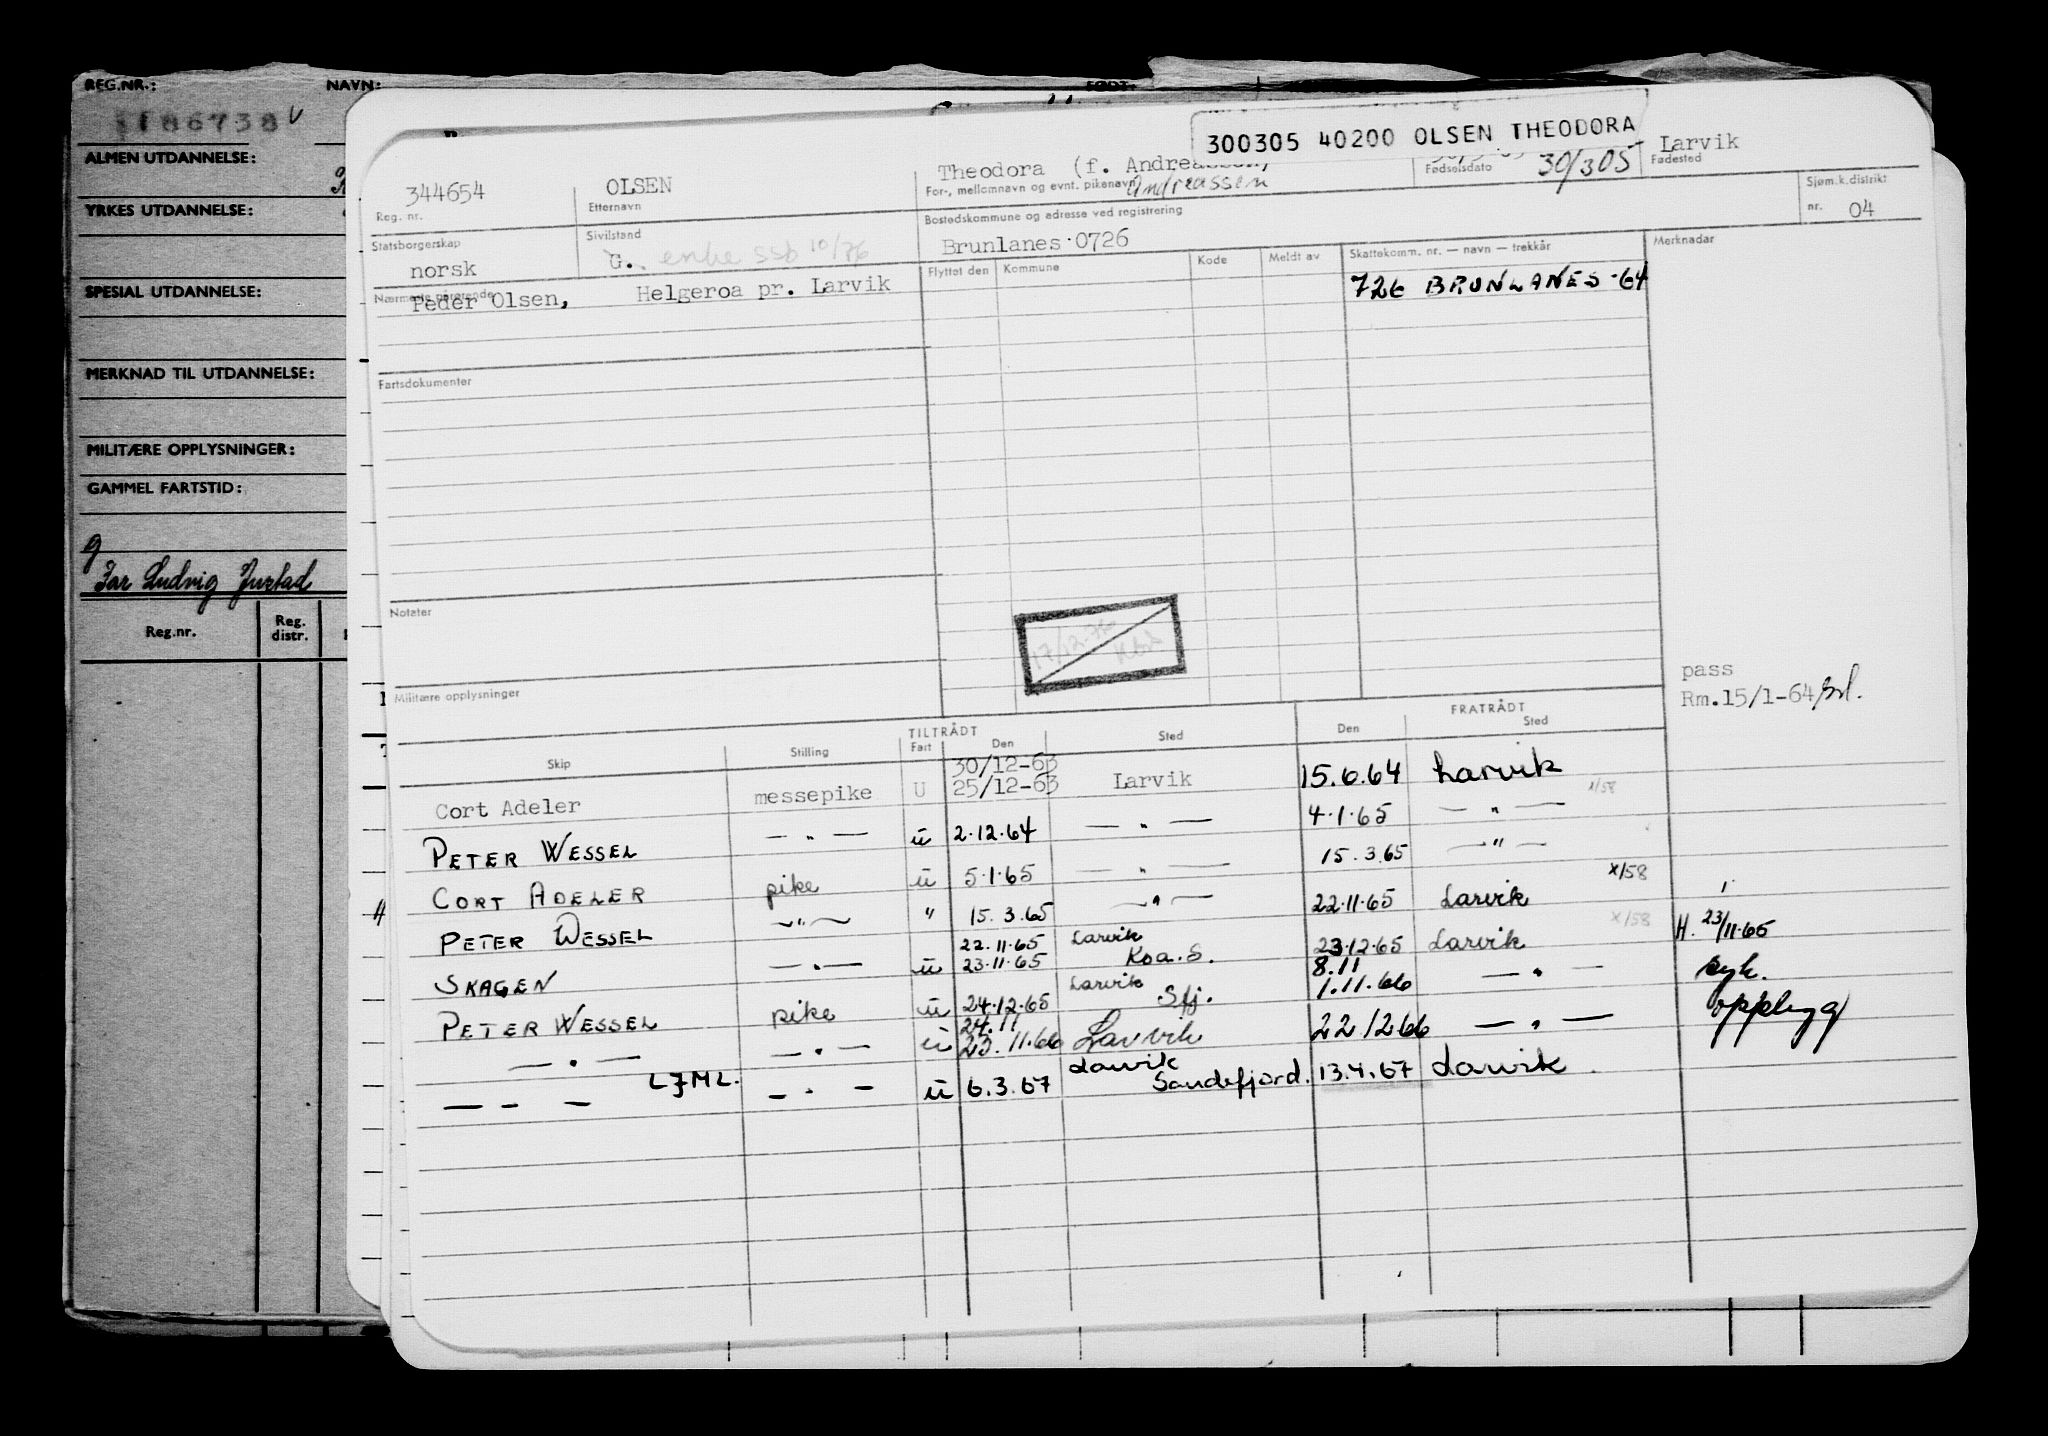 REG.NR.: NAVN: FØDT:
186738 V
ALMEN UTDANNELSE:
YRKES UTDANNELSE:
SPESIAL UTDANNELSE:
MERKNAD TIL UTDANNELSE:
MILITÆRE OPPLYSNINGER:
GAMMEL FARTSTID:
g
Far Ludvig
Reg.nr. Reg. distr.
300305 40200 OLSEN THEODORA
344654 OLSEN Theodora (f. Andreassen) 30/305 Larvik
Reg. nr. Etternavn For-, mellomnavn og evnt. pikenavn Andreassen Fødselsdato Fødested
Statsborgerskap Sivilstand Bostedskommune og adresse ved registrering Sjøm.k.distrikt
norsk G. enke ssb 10/76 Brunlanes 0726 nr. 04
Nærmeste pårørende Flyttet den Kommune Kode Meldt av Skattekomm. nr. — navn — trekkår Merknader
Peder Olsen, Helgeroa pr. Larvik 726 BRUNLANES -64
Fartsdokumenter
Notater
17/12-76
Militære opplysninger
pass
Rm.15/1-64
TILTRÅDT FRATRÅDT
Skip Stilling Fart Den Sted Den Sted
30/12-63
Cort Adeler messepike U 25/12-63 Larvik 15.6.64 Larvik
PETER WESSEL — " — ū 2.12.64 — " — 4.1.65 — " — x/58
CORT ADELER pike ū 5.1.65 — " — 15.3.65 — " —
PETER WESSEL — " — " 15.3.65 — " — 22.11.65 Larvik x/58
22.11.65 Larvik
SKAGEN — " — ū 23.11.65 Koa.S. 23.12.65 Larvik x/58 H. 23/11.65
Larvik 8.11
PETER WESSEL pike ū 24.12.65 Sfj. 1.11.66 — " — syk.
24.11
— " — — " — ū 23.11.66 Larvik 22.12.66 — " — opphygg
Larvik
— — — LJML. — " — ū 6.3.67 Sandefjord. 13.4.67 Larvik